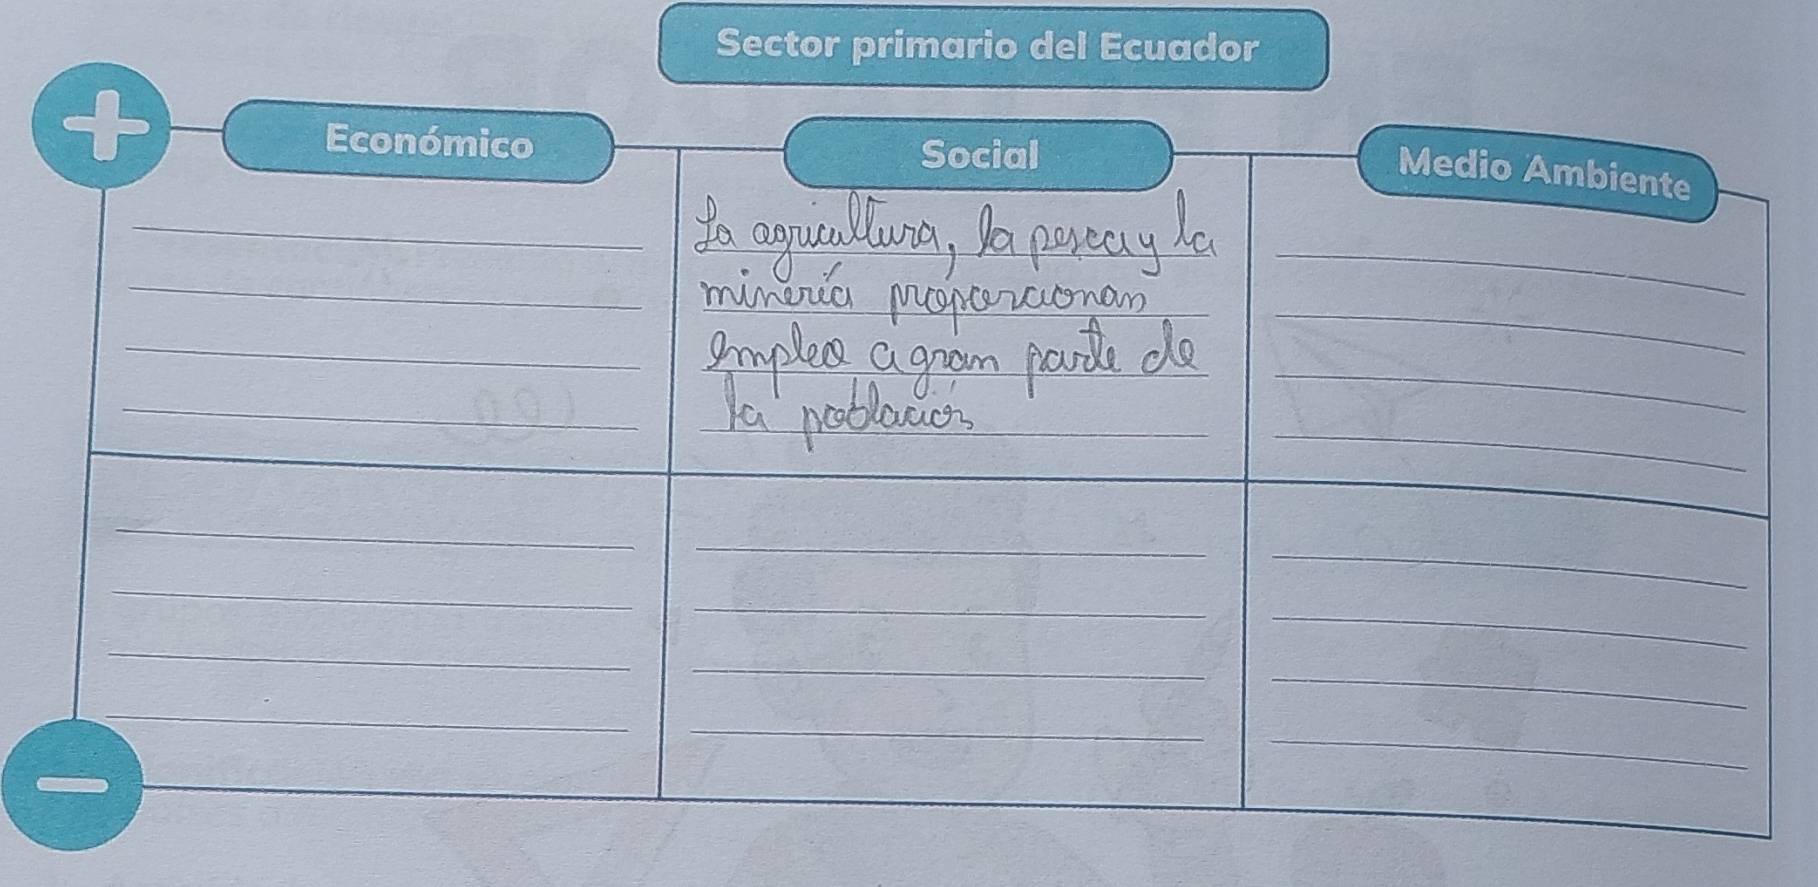 Sector primario del Ecuador
+
Económico
Social
Medio Ambiente
La agricultura, la pesca y la
minería proporcionan
empleo a gran parte de
la población
-